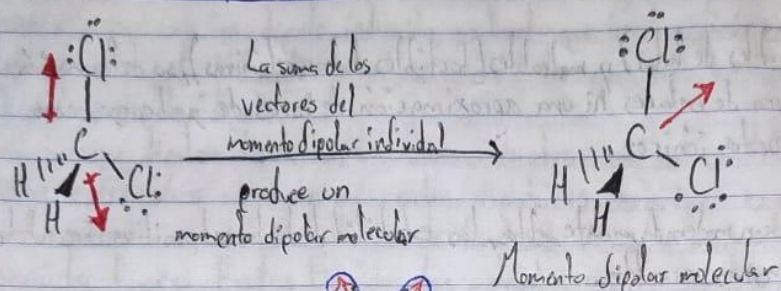 :Cl:
C
H
H
Cl:
La suma de los
vectores del
momento dipolar individal
produce un
momento dipolar molecular
:Cl:
C
H
H
Cl:
Momento dipolar molecular